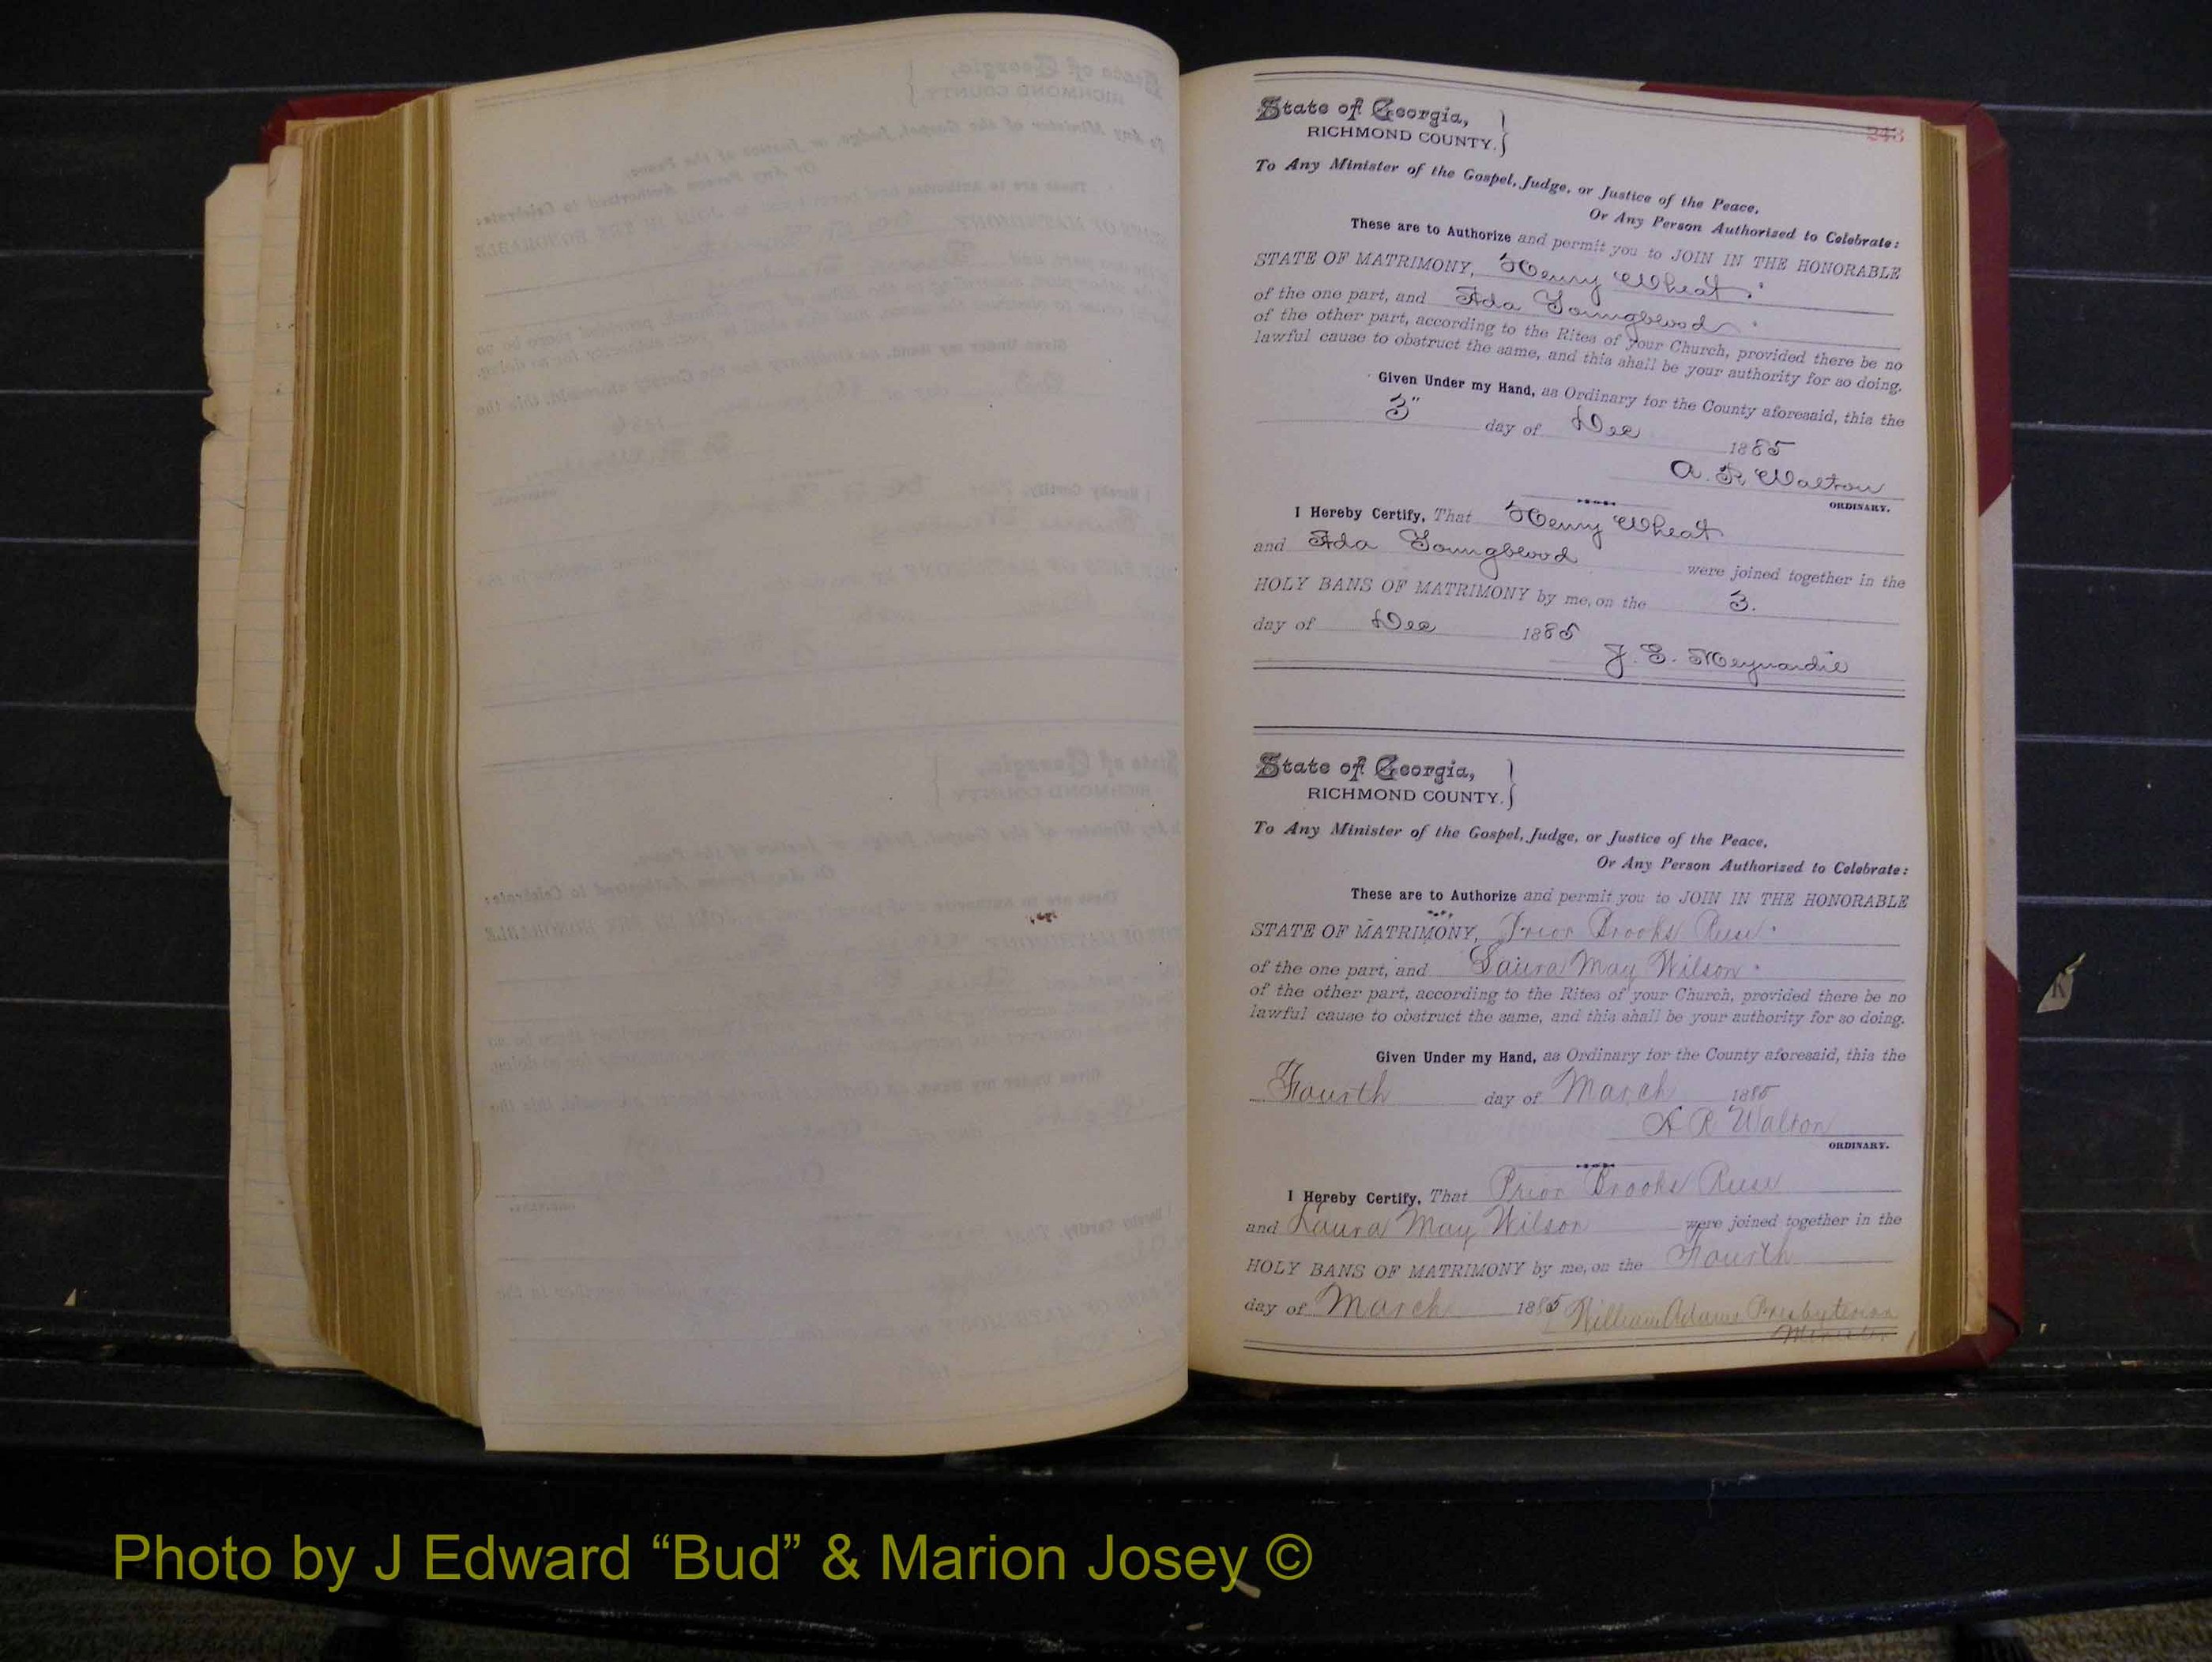 243
State of Georgia,
RICHMOND COUNTY.
To Any Minister of the Gospel, Judge, or Justice of the Peace,
Or Any Person Authorized to Celebrate:
These are to Authorize and permit you to JOIN IN THE HONORABLE
STATE OF MATRIMONY, Henry Wheat
of the one part, and Ada Youngblood
of the other part, according to the Rites of your Church, provided there be no
lawful cause to obstruct the same, and this shall be your authority for so doing.
Given Under my Hand, as Ordinary for the County aforesaid, this the
3" day of Dec 1885
A. R. Walton
ORDINARY.
I Hereby Certify, That Henry Wheat
and Ada Youngblood were joined together in the
HOLY BANS OF MATRIMONY by me, on the 3.
day of Dec 1885
J. E. Meynardie
State of Georgia,
RICHMOND COUNTY.
To Any Minister of the Gospel, Judge, or Justice of the Peace,
Or Any Person Authorized to Celebrate:
These are to Authorize and permit you to JOIN IN THE HONORABLE
STATE OF MATRIMONY, Prior Brooks Reese
of the one part, and Laura May Wilson
of the other part, according to the Rites of your Church, provided there be no
lawful cause to obstruct the same, and this shall be your authority for so doing.
Given Under my Hand, as Ordinary for the County aforesaid, this the
Fourth day of March 1885
A R Walton
ORDINARY.
I Hereby Certify, That Prior Brooks Reese
and Laura May Wilson were joined together in the
HOLY BANS OF MATRIMONY by me, on the Fourth
day of March 1885 William Adams Presbyterian
Minister
Photo by J Edward “Bud” & Marion Josey ©